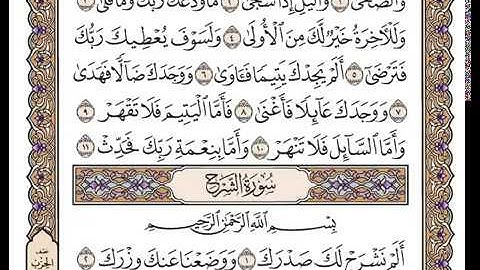 وَٱلضُّحَىٰ ١ وَٱلَّيْلِ إِذَا سَجَىٰ ٢ مَا وَدَّعَكَ رَبُّكَ وَمَا قَلَىٰ ٣
وَلَلْأٓخِرَةُ خَيْرٌ لَّكَ مِنَ ٱلْأُولَىٰ ٤ وَلَسَوْفَ يُعْطِيكَ رَبُّكَ
فَتَرْضَىٰٓ ٥ أَلَمْ يَجِدْكَ يَتِيمًا فَـَٔاوَىٰ ٦ وَوَجَدَكَ ضَآلًّا فَهَدَىٰ
٧ وَوَجَدَكَ عَآئِلًا فَأَغْنَىٰ ٨ فَأَمَّا ٱلْيَتِيمَ فَلَا تَقْهَرْ ٩
وَأَمَّا ٱلسَّآئِلَ فَلَا تَنْهَرْ ١٠ وَأَمَّا بِنِعْمَةِ رَبِّكَ فَحَدِّثْ ١١
سُورَةُ الشَّرْحِ
بِسْمِ ٱللَّهِ ٱلرَّحْمَٰنِ ٱلرَّحِيمِ
أَلَمْ نَشْرَحْ لَكَ صَدْرَكَ ١ وَوَضَعْنَا عَنكَ وِزْرَكَ ٢
الحزب